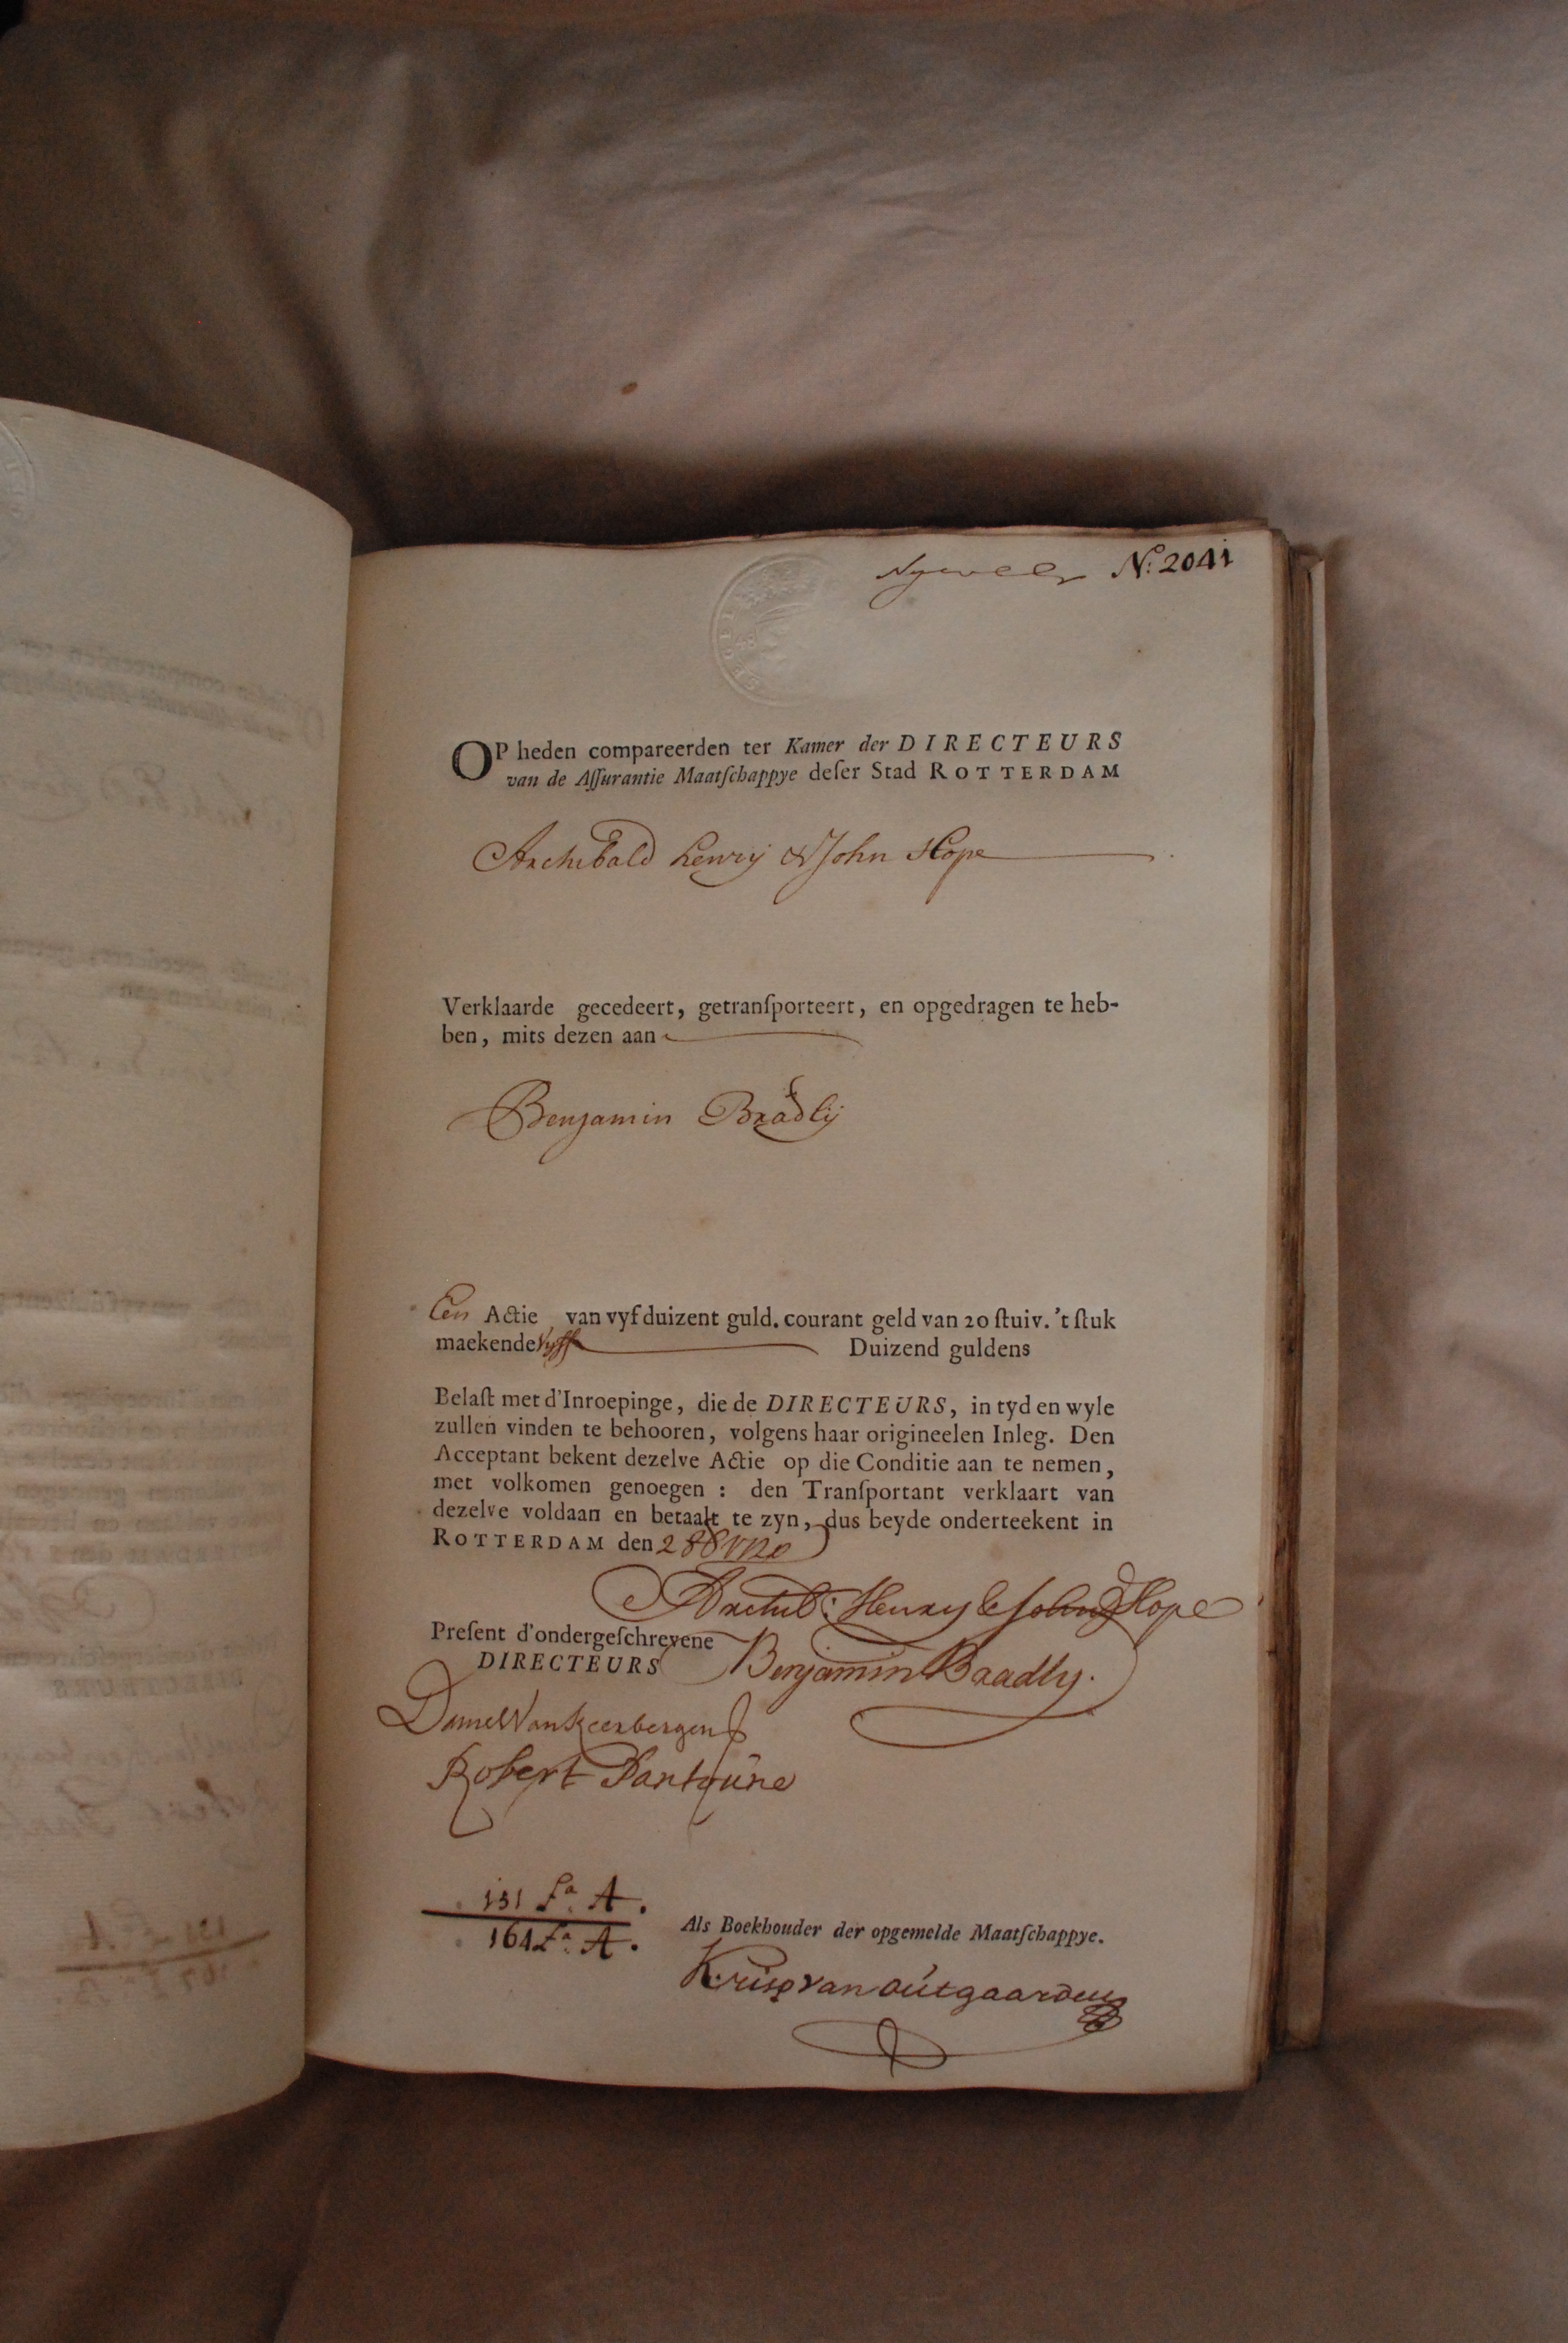 N: 2041
OP heden compareerden ter Kamer der DIRECTEURS
van de Aſſurantie Maatſchappye deſer Stad ROTTERDAM
Archibald henrij & John Hope
Verklaarde gecedeert, getranſporteert, en opgedragen te heb-
ben, mits dezen aan
Benjamin Bradlij
Een Actie van vyf duizent guld. courant geld van 20 ſtuiv. 't ſtuk
maekende vyff Duizend guldens
Belaſt met d'Inroepinge, die de DIRECTEURS, in tyd en wyle
zullen vinden te behooren, volgens haar origineelen Inleg. Den
Acceptant bekent dezelve Actie op die Conditie aan te nemen,
met volkomen genoegen : den Tranſportant verklaart van
dezelve voldaan en betaalt te zyn, dus beyde onderteekent in
ROTTERDAM den
Archib: Henry & John Hope
Preſent d'ondergeſchrevene
DIRECTEURS
Benjamin Braadly.
Daniel Van Keerbergen
Robert Partoüne
131 Fa. A.
164 Fa. A.
Als Boekhouder der opgemelde Maatſchappye.
Krisp van oütgaarden